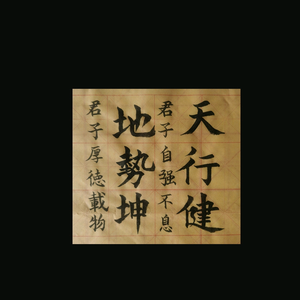 天行健
君子自强不息
地勢坤
君子厚德載物